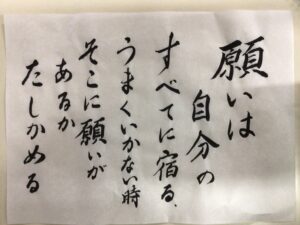 願いは
自分の
すべてに宿る、
うまくいかない時
そこに願いが
あるか
たしかめる